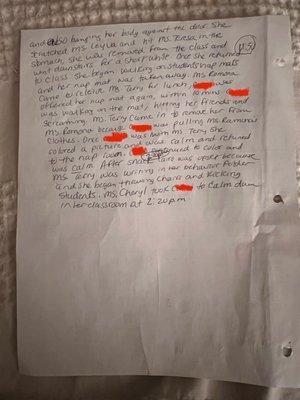 and also banging her body against the door she
scratched Ms. Leyva and hit Ms. Teresa in the
stomach, she was removed from the class and
went downstairs for a short while. Once she returned
to class she began walking on students nap mats
and her nap mat was taken away. Ms. Ramona
Came relieve Ms. Terry for lunch, was
offered her nap mat again, within 10 mins
was walking on the mat, hitting her friends and
screaming. Ms. Terry came in to remove her from
Ms. Ramona because was pulling Ms. Ramonas
Clothes. Once was with Ms. Terry she
colored a picture and was calm and returned
to the nap room. continued to color and
was calm. After snack was upset because
Ms. Terry was writing in her behavior folder
and she began throwing chairs and kicking
Students. Ms. Cheryl took C to calm down
in her classroom at 2:20pm